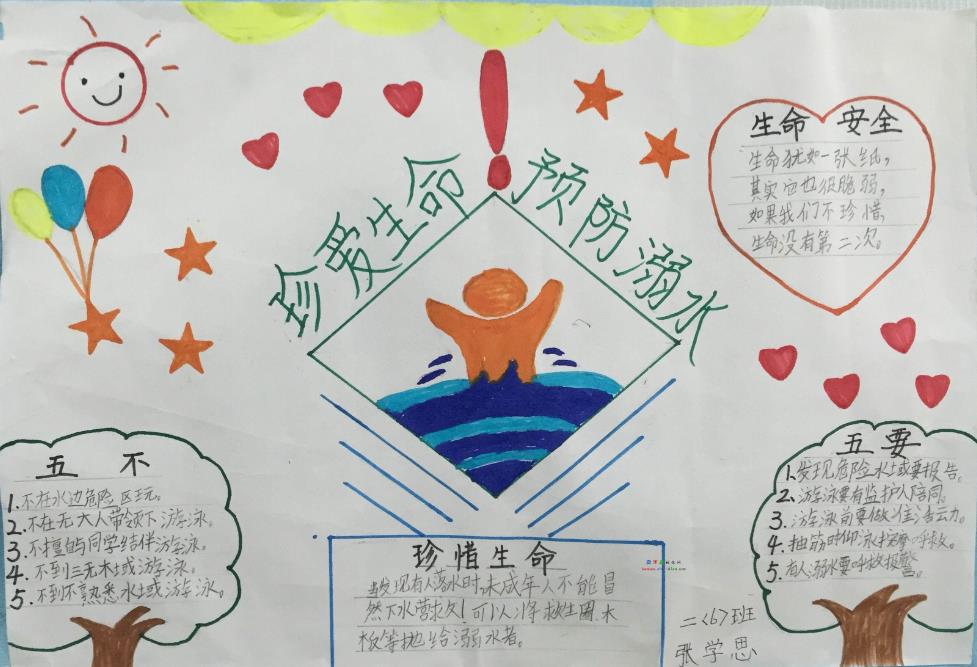 珍爱生命
预防溺水
生命 安全
生命犹如一张纸，
其实它也很脆弱，
如果我们不珍惜，
生命没有第二次。
五 不
1.不在水边危险区玩。
2.不在无大人带领下游泳。
3.不擅自与同学结伴游泳。
4.不到三无水域游泳。
5.不到不熟悉水域游泳。
五 要
1.发现危险水域要报告。
2.游泳要有监护人陪同。
3.游泳前要做准备活动。
4.抽筋时仰泳 呼救。
5.有人溺水要呼救报警。
珍惜生命
当发现有人落水时未成年人不能冒
然下水营救！可以将救生圈.木
板等抛给溺水者。
二<6>班
张学思